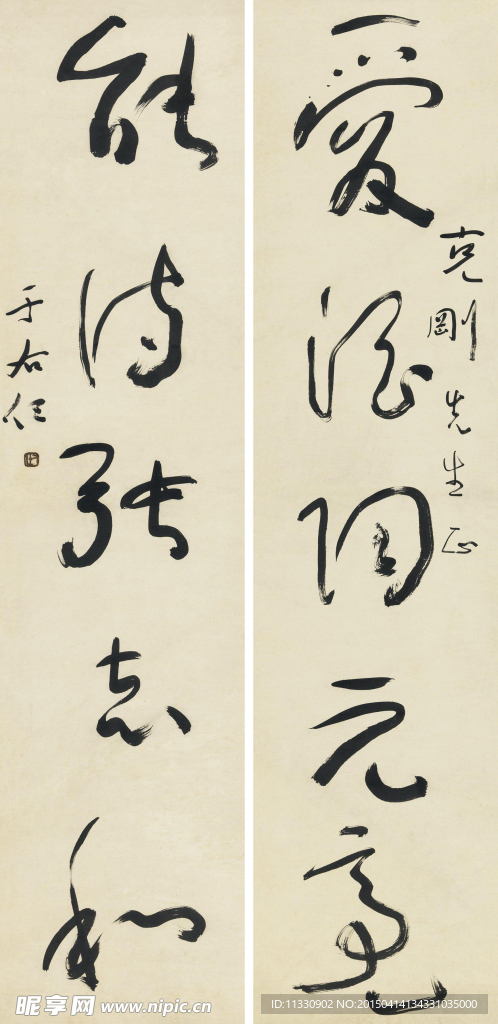 愛酒陶元亮
克剛先生正
能詩張志和
于右任
昵享网 www.nipic.cn
ID:11330902 NO:20150414134331035000